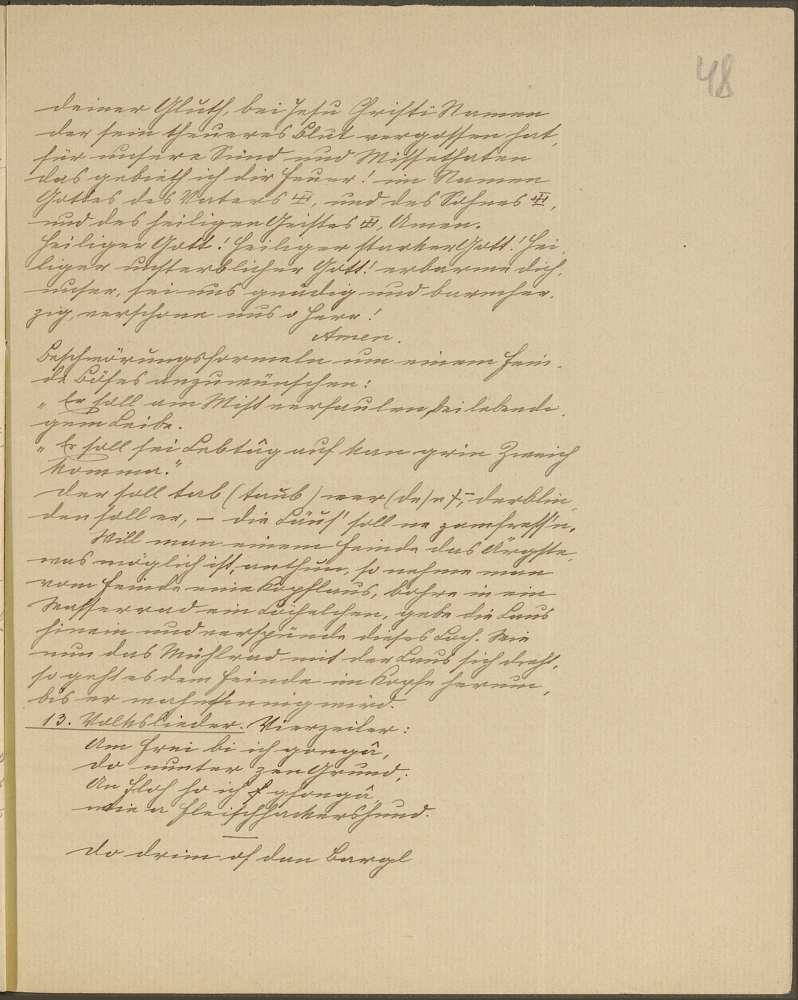 48
deiner Gluth, bei Jesu Christi Namen
der sein theueres Blut vergossen hat,
für unsere Sünd und Missethaten
das gebieth ich dir Feuer! im Namen
Gottes des Vaters ☩, und des Sohnes ☩,
und des heiligen Geistes ☩, Amen.
Heiliger Gott! Heiliger starker Gott! Hei-
liger unsterblicher Gott! erbarme dich,
unser, sei uns gnädig und barmher-
zig, verschone uns o Herr!
Amen.
Beschwörungsformeln um einem Fein-
de Böses anzuwünschen:
„Er soll am Mist verfaulen bei lebendi-
gem Leibe.
„Er soll sei Lebtåg auf kan grin Zweich
komma."
Der soll tab (taub) wer(de)n, derblin-
den soll er, – die Läus' soll ne zamfress'n.
Will man einem Feinde das Ärgste,
was möglich ist, anthun, so nehme man
vom Feinde eine Kopflaus, bohre in ein
Wasserrad ein Löchelchen, gebe die Laus
hinein und verspünde dieses Loch. Wie
nun das Mühlrad mit der Laus sich dreht,
so geht es dem Feinde im Kopfe herum,
bis er wahnsinnig wird.
13. Volkslieder. Vierzeiler:
Am Frei bi ich gangå,
do nunter zen Grund,
An Floh ho ich gfangå
wie a Fleischhackershund.
Do drim of dan Bargl